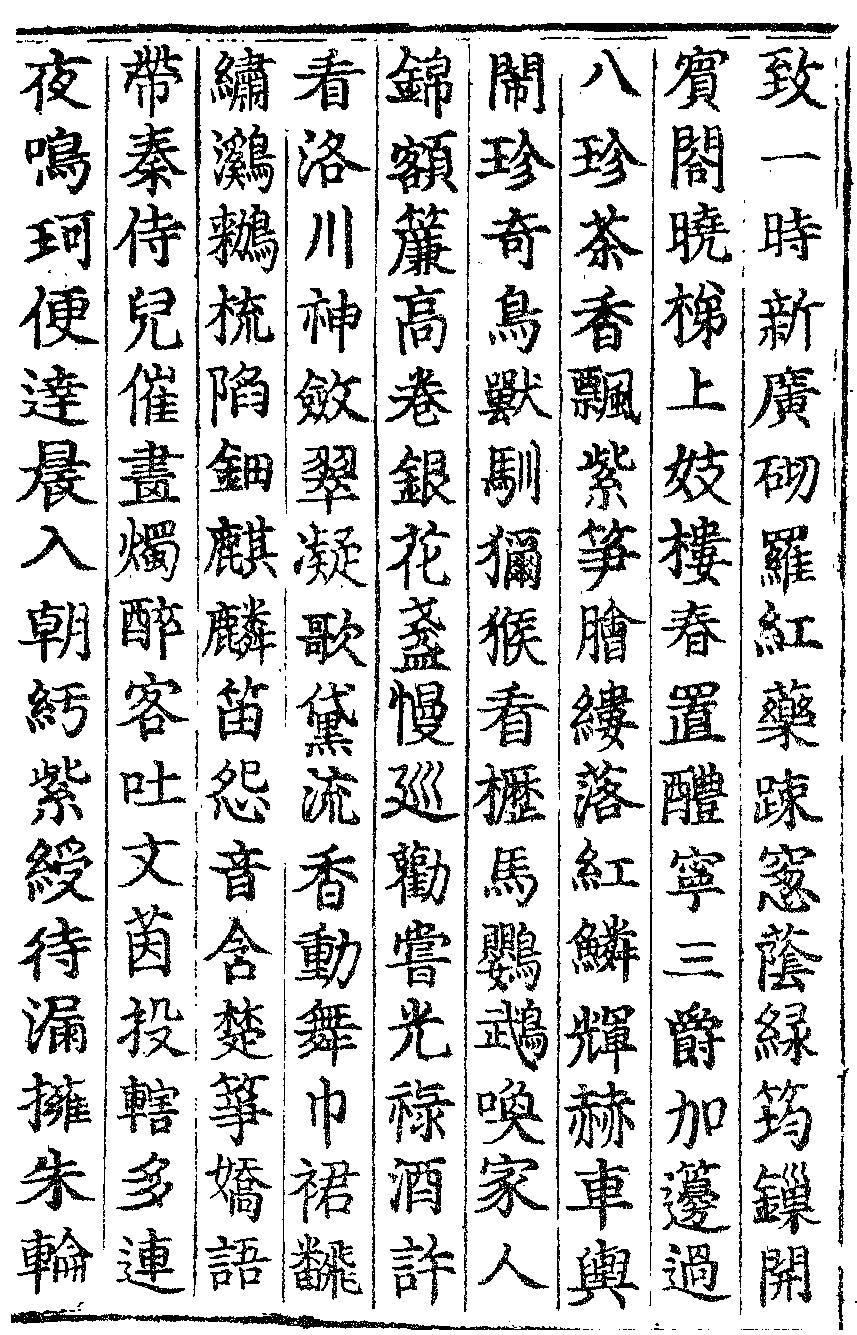 致一時新廣砌羅紅藥疎窻蔭緑筠鏁開
賔閤曉梯上妓樓春置醴寧三爵加籩過
八珍茶香飄紫笋膾縷落紅鱗輝赫車輿
鬧珍奇鳥獸馴獼猴看櫪馬鸚鵡喚家人
錦額簾高卷銀花盞慢巡勸嘗光祿酒許
看洛川神斂翠凝歌黛流香動舞巾裙飜
繡鸂鶒梳陷鈿麒麟笛怨音含楚箏嬌語
帶秦侍兒催畫燭醉客吐文茵投轄多連
夜鳴珂便達晨入朝紆紫綬待漏擁朱輪